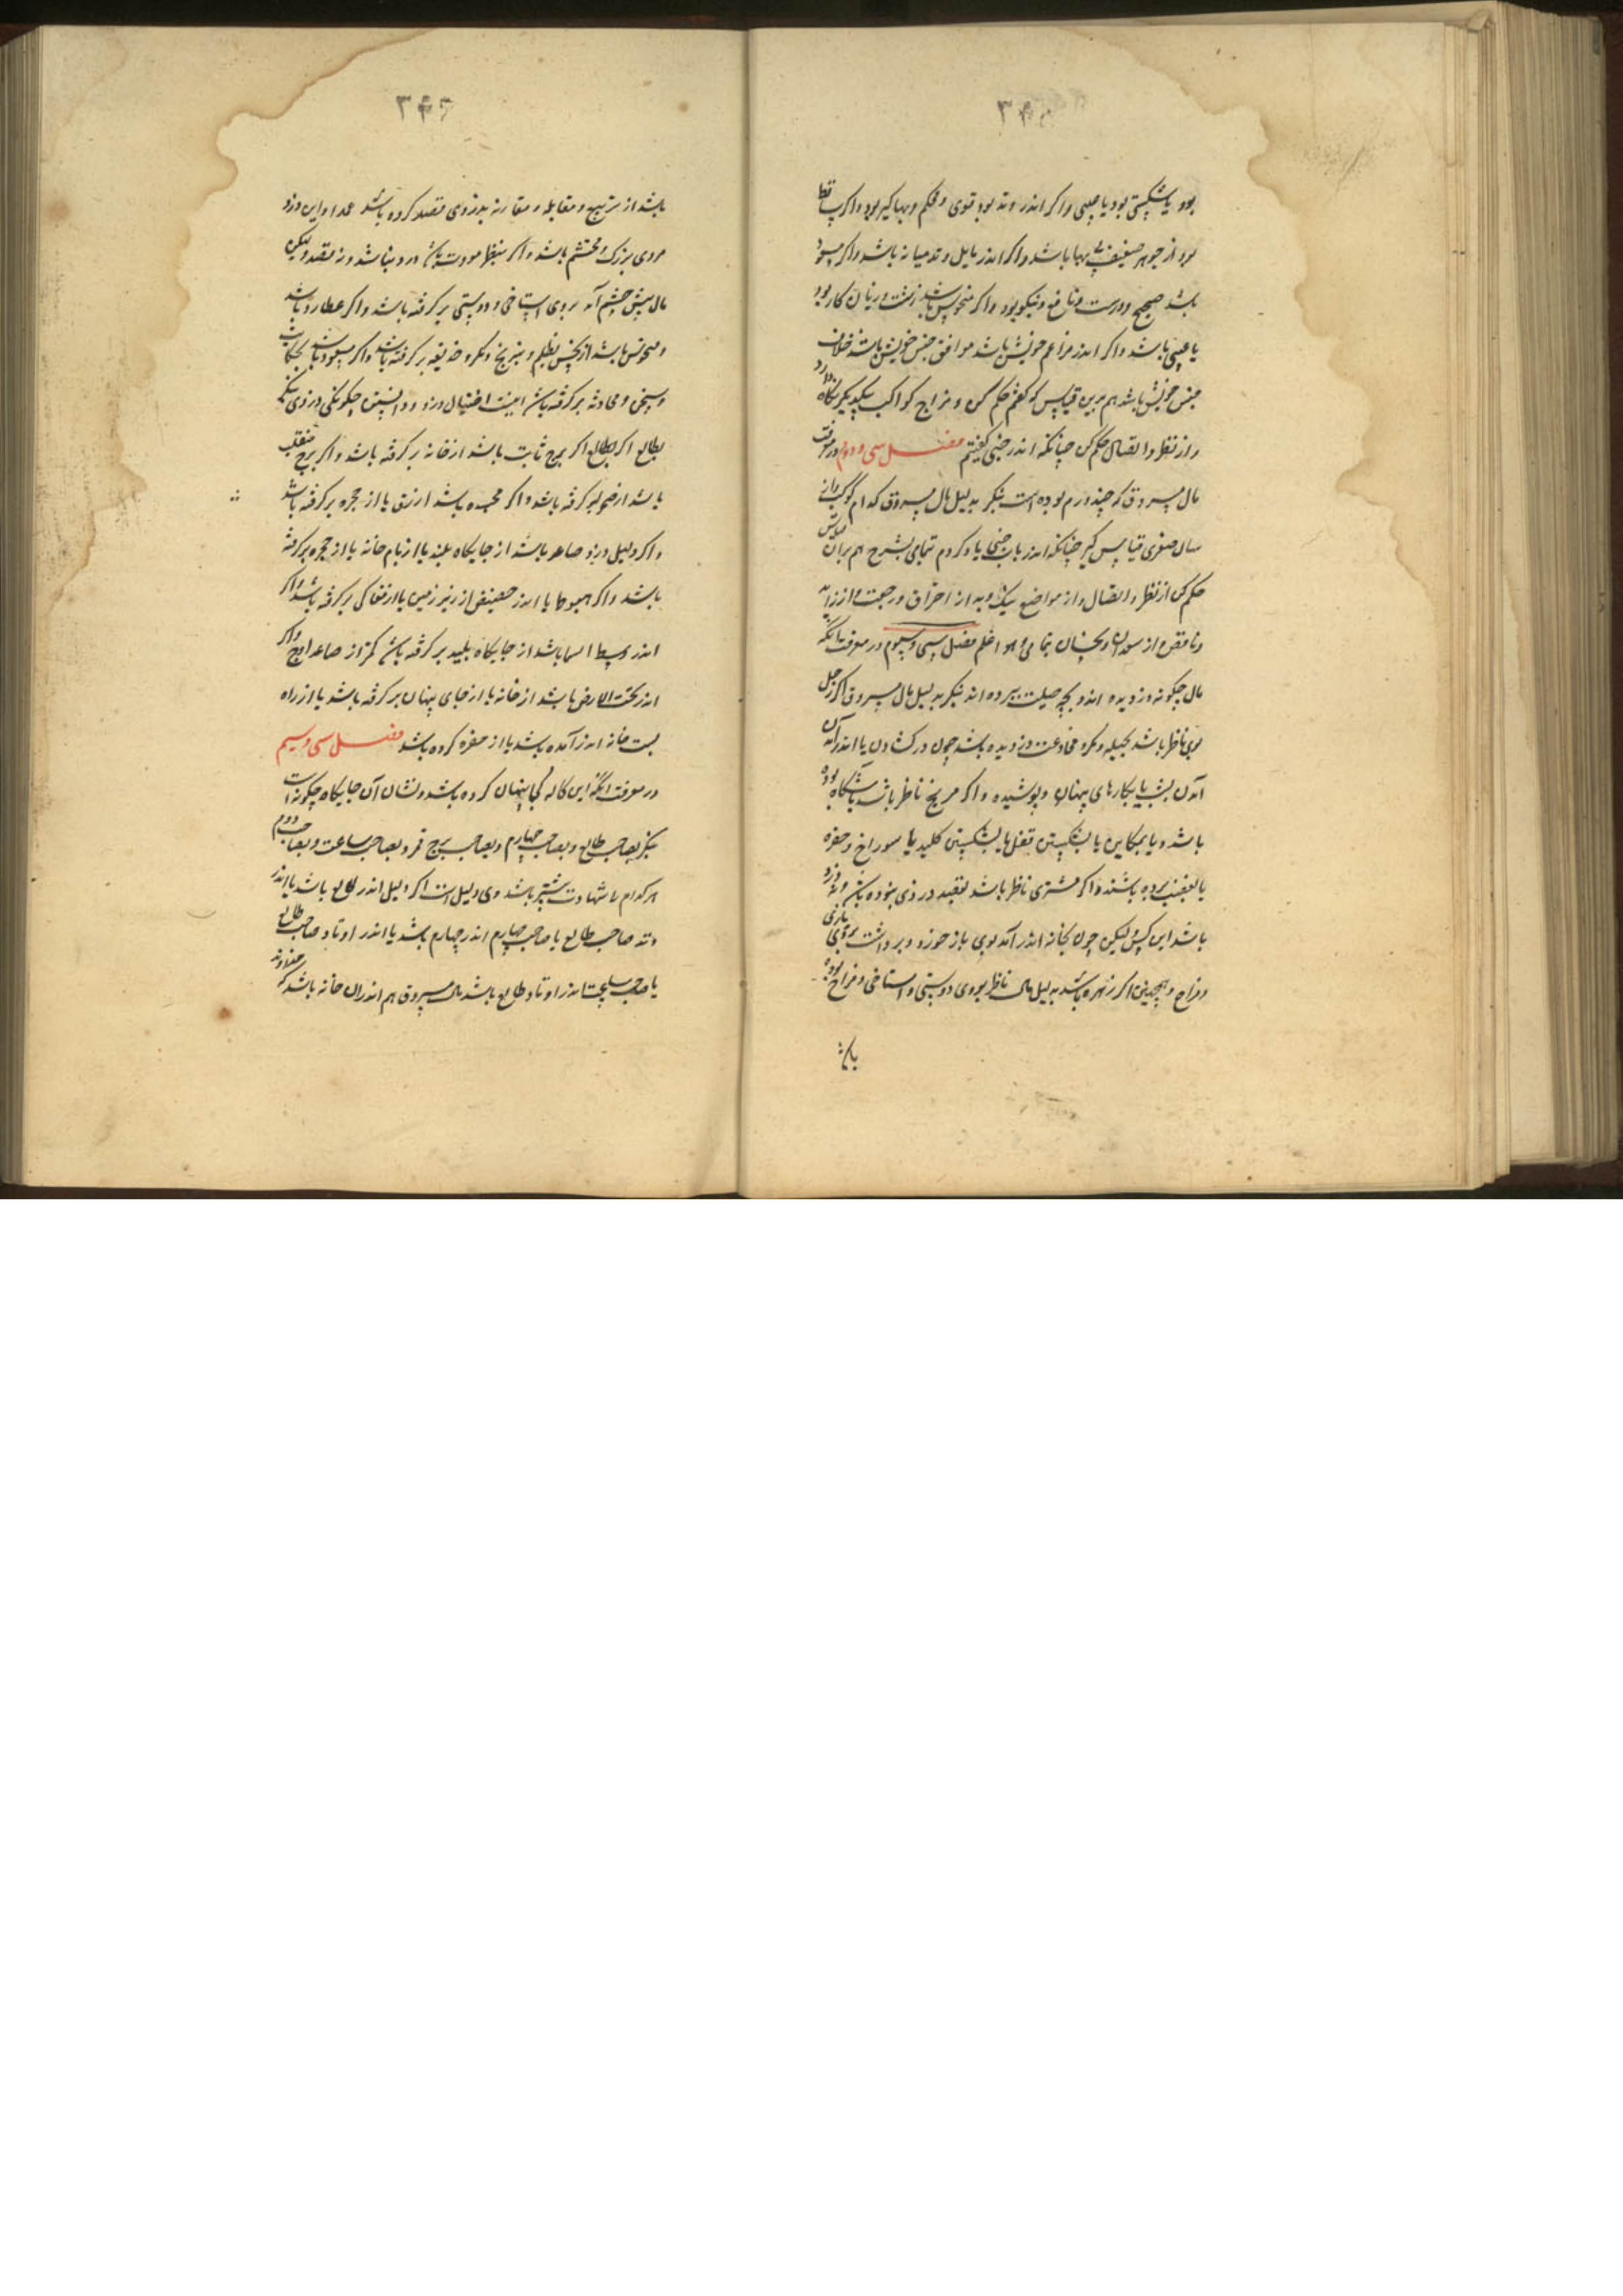 بود یا شکستی بود یا عیبی و اکر اندر وتد بود قوی و محکم و بها کیر بود و اکر ساقط
بود از جوهر ضعیف بی بها باشد و اکر اندر مایل وتد میانه باشد و اکر مسعود
باشد صحیح و درست و نافع و نیکو بود و اکر منحوس باشد زشت و زیان کار بود
یا عیبی باشد و اکر اندر باشد موافق جنس خویش باشد خلاف
جنس خویش باشد هم برین قیاس که کفتم حکم کن و مزاج کواکب بیکدیکر نکاه دار
و از نظر و اتصال حکم کن چنانکه اندر خبی کفتم فصل سی و دوم در معرفت
مال مسروق که چند درم بوده است بنکر بدلیل مال مسروق کدام کوکب
سال صغری قیاس کیر چنانکه اندر باب خبی یاد کردم تمامی بشرح هم بران قیاس
حکم کن از نظر و اتصال و از مواضع نیک و بد از احتراق و رجعت و از زاید
و ناقص از سعدان و نحسان تمامی و هو اعلم فصل سی و سیوم در معرفت آنکه
مال چکونه دزدیده اند و بچه حیلت ببرده اند بنکر بدلیل مال مسروق اکر زحل
بوی ناظر باشد بحیله و مکر و مخادعت دزدیده باشد چون در کشادن یا اندر آمدن
آمدن بشب یا بکارهای پنهان و پوشیده و اکر مریخ ناظر باشد بوده
باشد و یا بمکابره یا بشکستن قفلها یا شکستن کلیدها یا سوراخ و حفره
یا بغضب برده باشند و اکر مشتری ناظر باشد بقصد دزدی نبوده باشد و نه دزد
باشد این کس و لیکن چون بخانه اندر آمد بوی باز خورد و برداشت بروی بازی
و مزاح و همچنین اکر زهره باشد بدلیل مال ناظر بروی دوستی و استاخی و مزاح بوده
باشد
باشد از تربیع و مقابله و مقارنه بدزدی قصد کرده باشد عمدا و این دزد
مردی بزرک و محتشم باشد و اکر بنظر مودت باشد دزد نباشد و نه قصد و لیکن
مال پیش چشم آمد بروی استاخی و دوستی برکرفته باشد و اکر عطارد باشد
و منحوس باشد از نحس بظلم و نیرنج و مکر و خدیعه برکرفته باشد و اکر مسعود باشد بحکایت
و سخن و محادثه برکرفته باشد اینست احتیال دزد و دانستن چکونکی دزدی بنکر
بطالع اکر بطالع اکر برج ثابت باشد از خانه برکرفته باشد و اکر برج منقلب
باشد از برکرفته باشد و اکر مجسده باشد از یا از حجره برکرفته باشد
و اکر دلیل دزد صاعد باشد از جایکاه بلند یا از بام خانه یا از حجره برکرفته
باشد و اکر هبوط یا اندر حضیض از زیر زمین یا از مغاکی برکرفته باشد و اکر
اندر وسط السما باشد از جایکاه بلند برکرفته باشد کمتر از صاعد اوج و اکر
اندر تحت الارض باشد از خانه یا از جای پنهان برکرفته باشد یا از راه
پست خانه اندر آمده باشد یا از حفره کرده باشد فصل سی و سیم
در معرفت آنکه این کاله کجا پنهان کرده باشد و نشان آن جایکاه چکونه است
بنکر بصاحب طالع و بصاحب چهارم و بصاحب برج قمر و بصاحب ساعت و بصاحب دوم
هر کدام را شهادت بیشتر باشد وی دلیل است اکر دلیل اندر طالع باشد یا اندر
وتد صاحب طالع یا صاحب چهارم اندر چهارم باشد یا اندر اوتاد صاحب طالع
یا صاحب ساعت اندر اوتاد طالع باشد مال مسروق هم اندران خانه باشد که خداوند